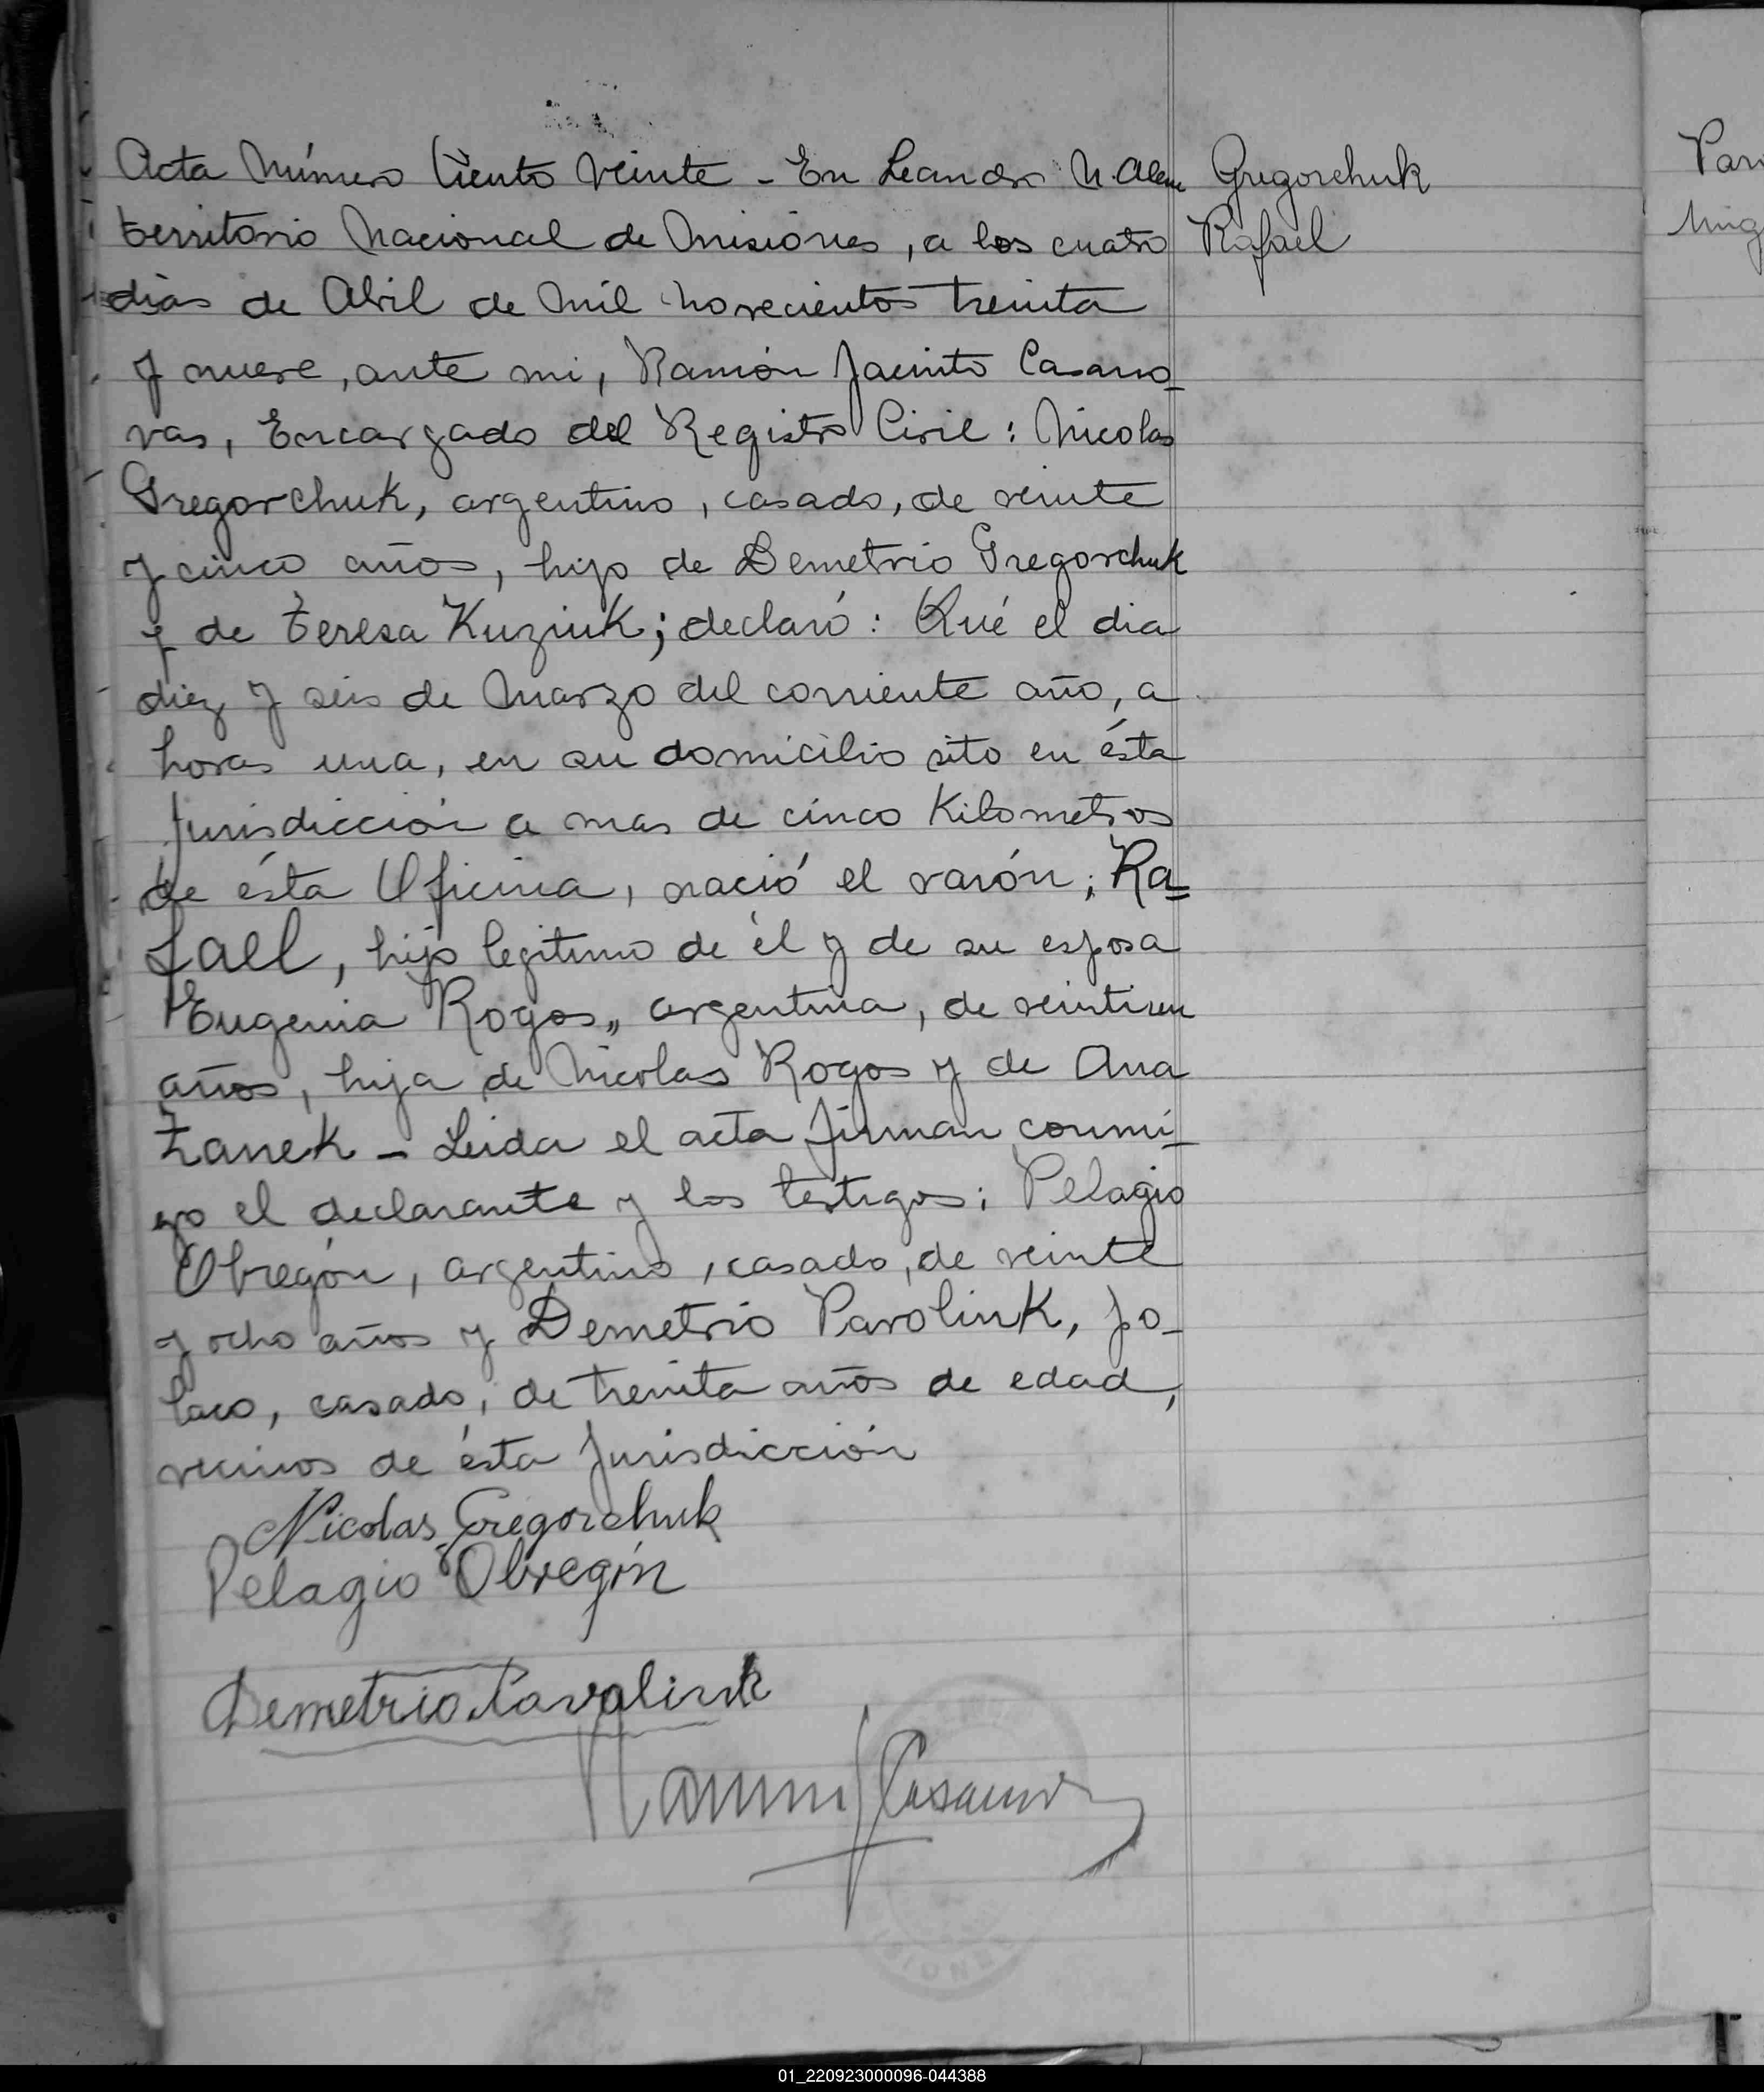 Acta Número Ciento Veinte - En Leandro N. Alem
territorio Nacional de Misiones, a los cuatro
dias de Abril de Mil novecientos treinta
y nueve, ante mi, Ramón Jacinto Casano-
vas, Encargado del Registro Civil: Nicolas
Gregorchuk, argentino, casado, de veinte
y cinco años, hijo de Demetrio Gregorchuk
y de Teresa Kuziuk; declaró: Qué el dia
diez y seis de Marzo del corriente año, a
horas una, en su domicilio sito en ésta
Jurisdicción a mas de cinco Kilometros
de ésta Oficina, nació el varón; Ra=
fael, hijo legitimo de él y de su esposa
Eugenia Rogos,, argentina, de veintiun
años, hija de Nicolas Rogos y de Ana
Zanek - Leida el acta firman conmi-
go el declarante y los testigos; Pelagio
Obregón, argentino, casado, de veinte
y ocho años y Demetrio Pavolink, po-
laco, casado, de treinta años de edad,
vecinos de ésta Jurisdicción
Nicolas Gregorchuk
Pelagio Obregón
Demetrio Pavolink
Ramon J Casanovas
Gregorchuk
Rafael
01_220923000096-044388